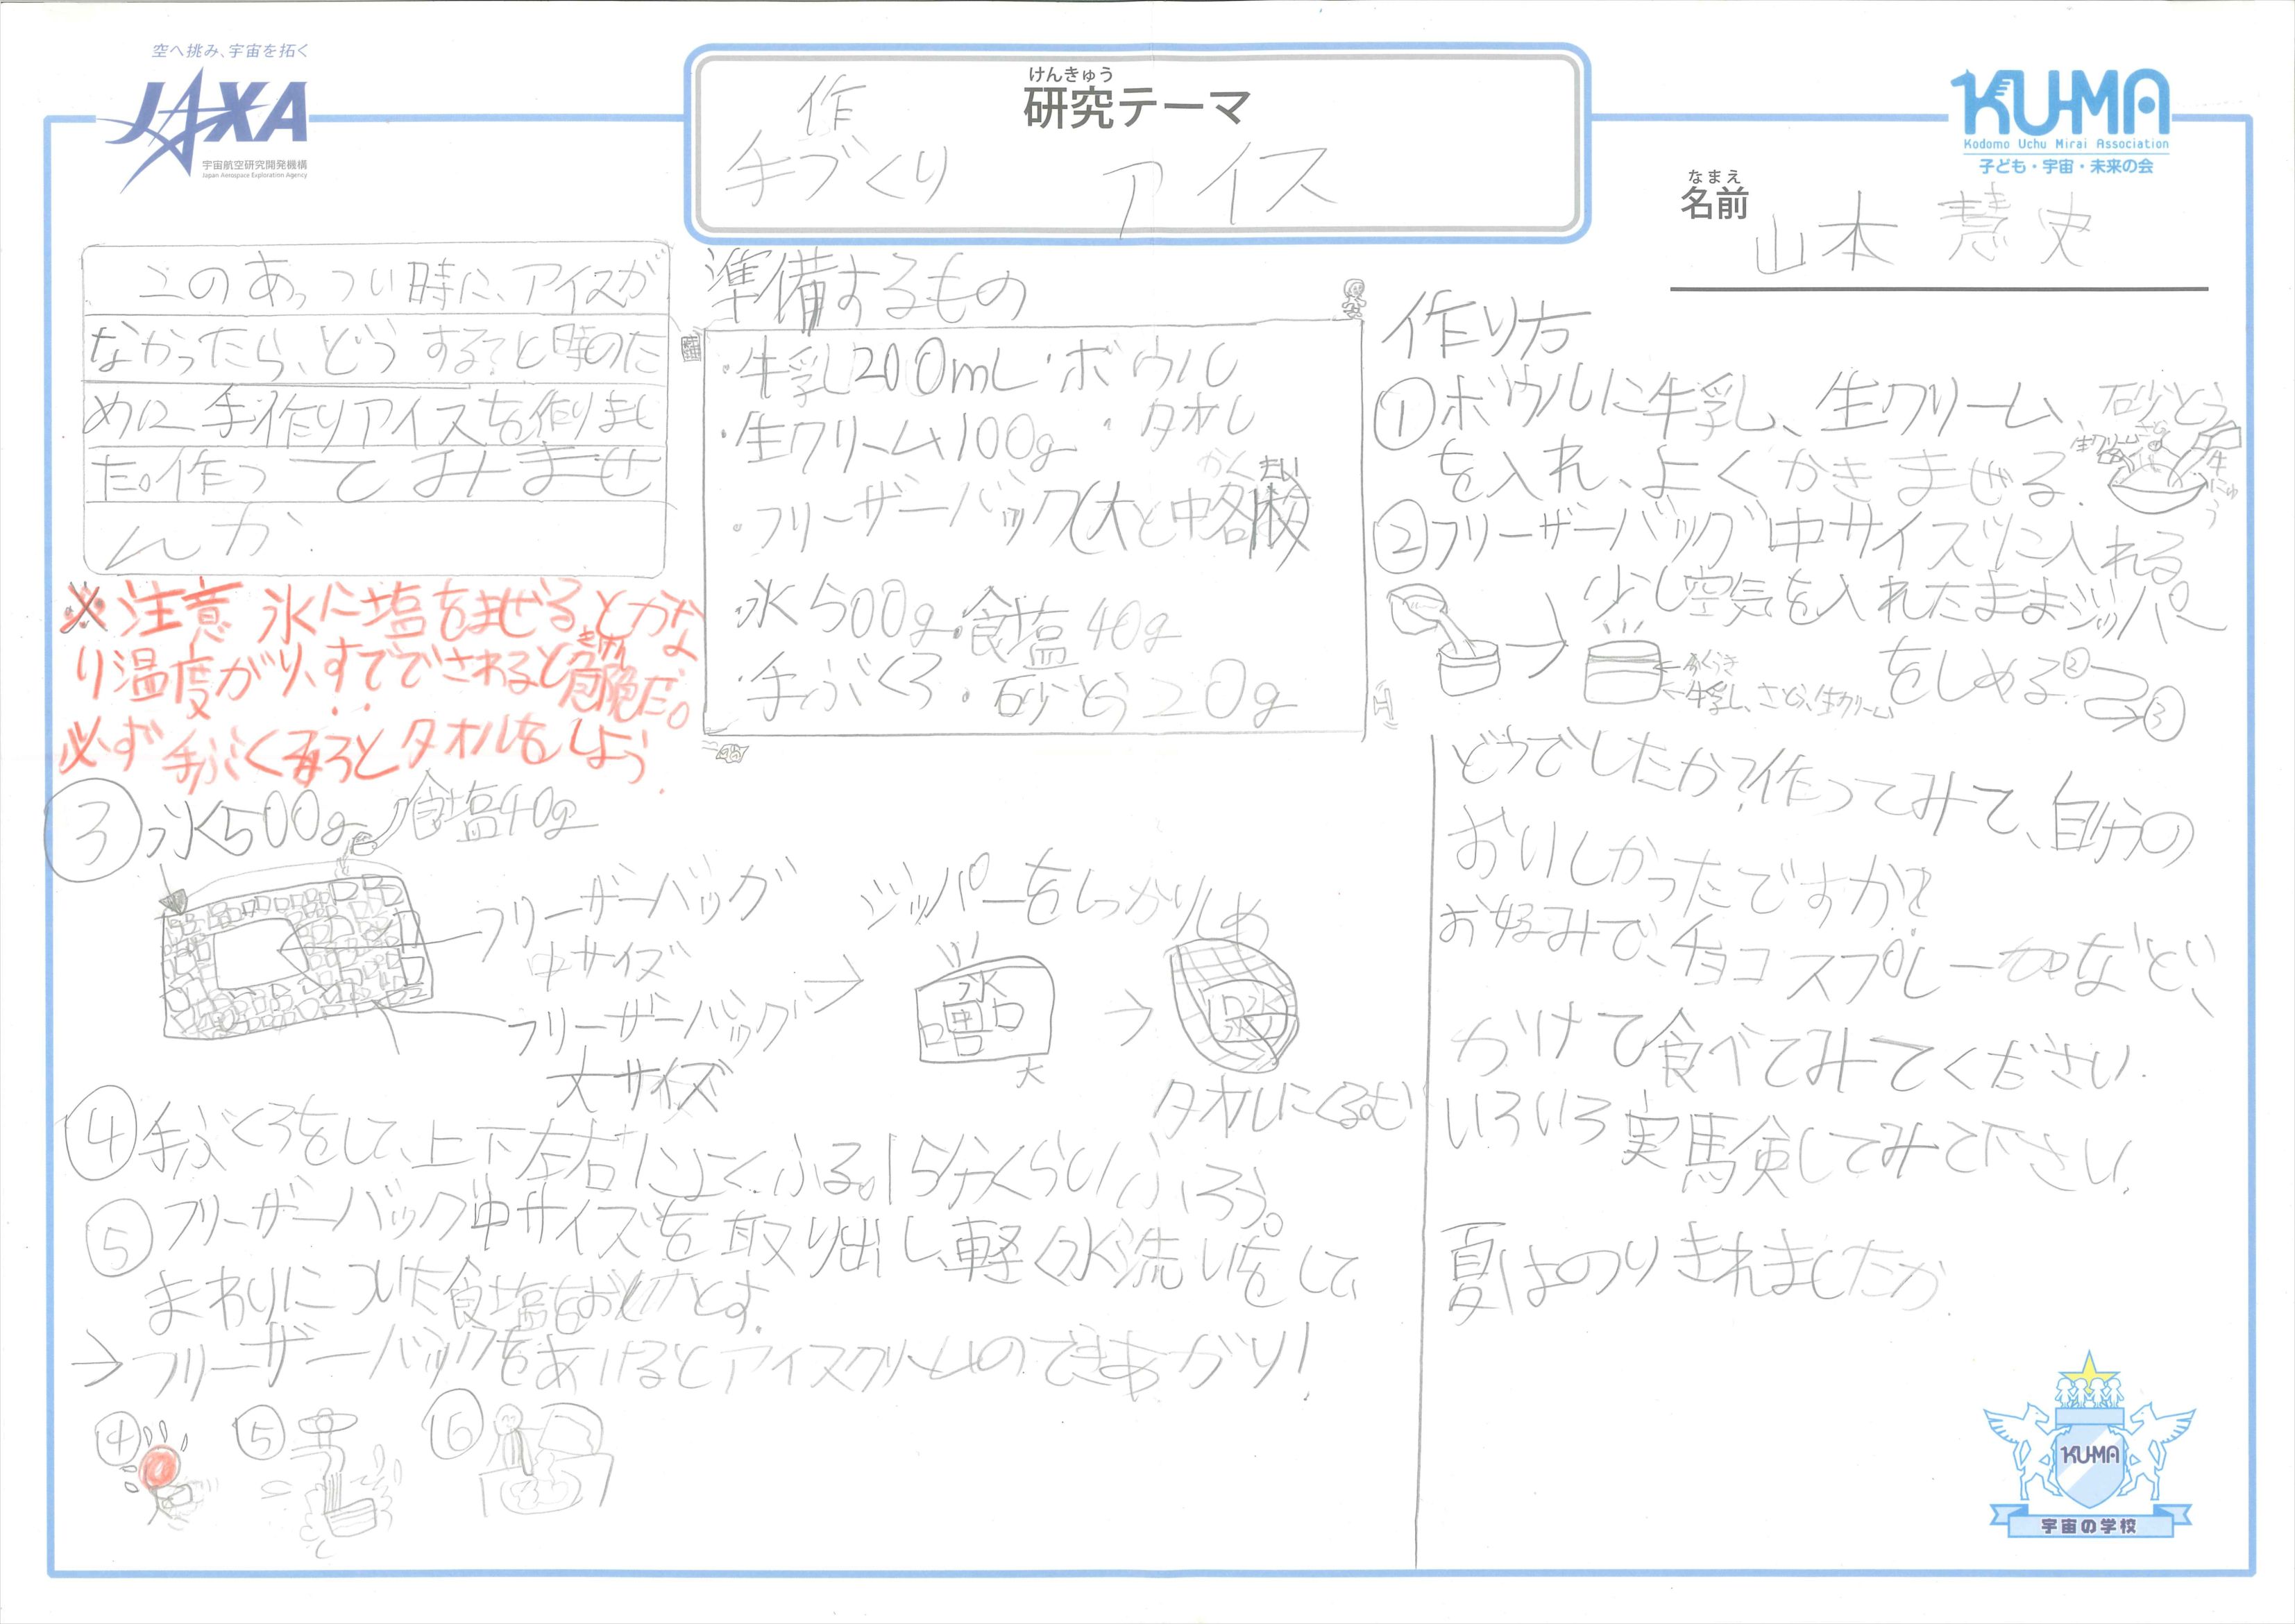 空へ挑み、宇宙を拓く
JAXA
宇宙航空研究開発機構
Japan Aerospace Exploration Agency
けんきゅう
研究テーマ
作
手づくり アイス
KU-MA
Kodomo Uchu Mirai Association
子ども・宇宙・未来の会
なまえ
名前
山本 慧史
このあっつい時に、アイスが
なかったら、どうする?と時のた
めに手作りアイスを作りまし
た。作ってみませ
んか.
※注意 氷に塩をまぜるとかな
り温度がり、すででさわると危険だ。
きけん
必ず手ぶくろとタオルをしよう.
準備するもの
・牛乳200mL・ボウル
・生クリーム100g ・タオル
かく まい
・フリーザーバック(大と中各1枚)
・氷500g・食塩40g
・手ぶくろ・砂とう20g
作り方
①ボウルに牛乳、生クリーム、砂とう
を入れ、よくかきまぜる.
生クリーム
牛にゅう
②フリーザーバッグ中サイズに入れる
少し空気を入れたままジッパー
をしめる.
②→③
くうき
牛乳、さとう、生クリーム
③氷500g 食塩40g
フリーザーバッグ
中サイズ
フリーザーバッグ
大サイズ
→
ジッパーをしっかりしめ
氷
大
→
タオルにくるむ
④手ぶくろをして、上下左右によくふる。15分くらいふろう。
⑤フリーザーバック中サイズを取り出し、軽く水洗いをして
まわりについた食塩をおとす.
→フリーザーバックをあけるとアイスクリームのできあがり!
④ ⑤ ⑥
どうでしたか?作ってみて、自分の
おいしかったですか?
お好みで、チョコスプレーなど、
かけて食べてみてください.
いろいろ実験してみて下さい.
夏はのりきれましたか
KU-MA
宇宙の学校